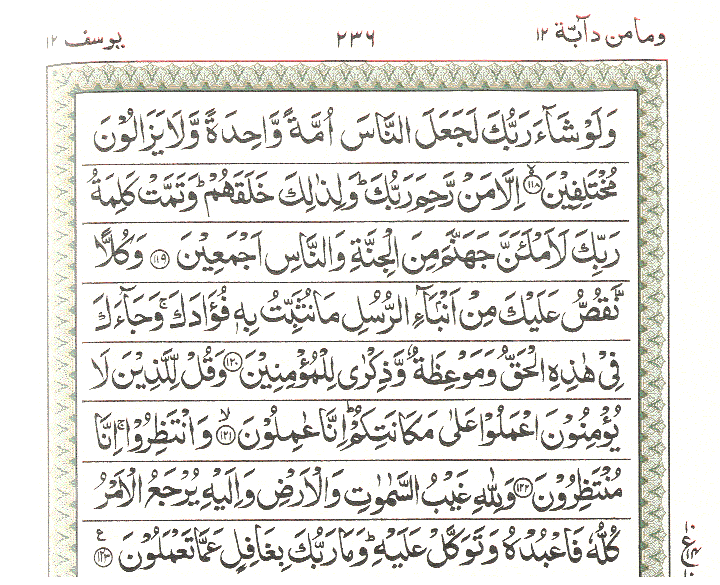 وما من دآبة ١٢ ٢٣٦ يوسف ١٢
وَلَوْ شَآءَ رَبُّكَ لَجَعَلَ النَّاسَ اُمَّةً وَّاحِدَةً وَّلَا يَزَالُوْنَ
مُخْتَلِفِيْنَ ۙ﴿۱۱۸﴾ اِلَّا مَنْ رَّحِمَ رَبُّكَ ؕ وَلِذٰلِكَ خَلَقَهُمْ ؕ وَتَمَّتْ كَلِمَةُ
رَبِّكَ لَاَمْلَـَٔنَّ جَهَنَّمَ مِنَ الْجِنَّةِ وَالنَّاسِ اَجْمَعِيْنَ ﴿۱۱۹﴾ وَكُلًّا
نَّقُصُّ عَلَيْكَ مِنْ اَنْۢبَآءِ الرُّسُلِ مَا نُثَبِّتُ بِهٖ فُؤَادَكَ ۚ وَجَآءَكَ
فِيْ هٰذِهِ الْحَقُّ وَمَوْعِظَةٌ وَّذِكْرٰى لِلْمُؤْمِنِيْنَ ﴿۱۲۰﴾ وَقُلْ لِّلَّذِيْنَ لَا
يُؤْمِنُوْنَ اعْمَلُوْا عَلٰى مَكَانَتِكُمْ ؕ اِنَّا عٰمِلُوْنَ ۙ﴿۱۲۱﴾ وَانْتَظِرُوْا ۚ اِنَّا
مُنْتَظِرُوْنَ ﴿۱۲۲﴾ وَلِلّٰهِ غَيْبُ السَّمٰوٰتِ وَالْاَرْضِ وَاِلَيْهِ يُرْجَعُ الْاَمْرُ
كُلُّهٗ فَاعْبُدْهُ وَتَوَكَّلْ عَلَيْهِ ؕ وَمَا رَبُّكَ بِغَافِلٍ عَمَّا تَعْمَلُوْنَ ﴿۱۲۳﴾ ع